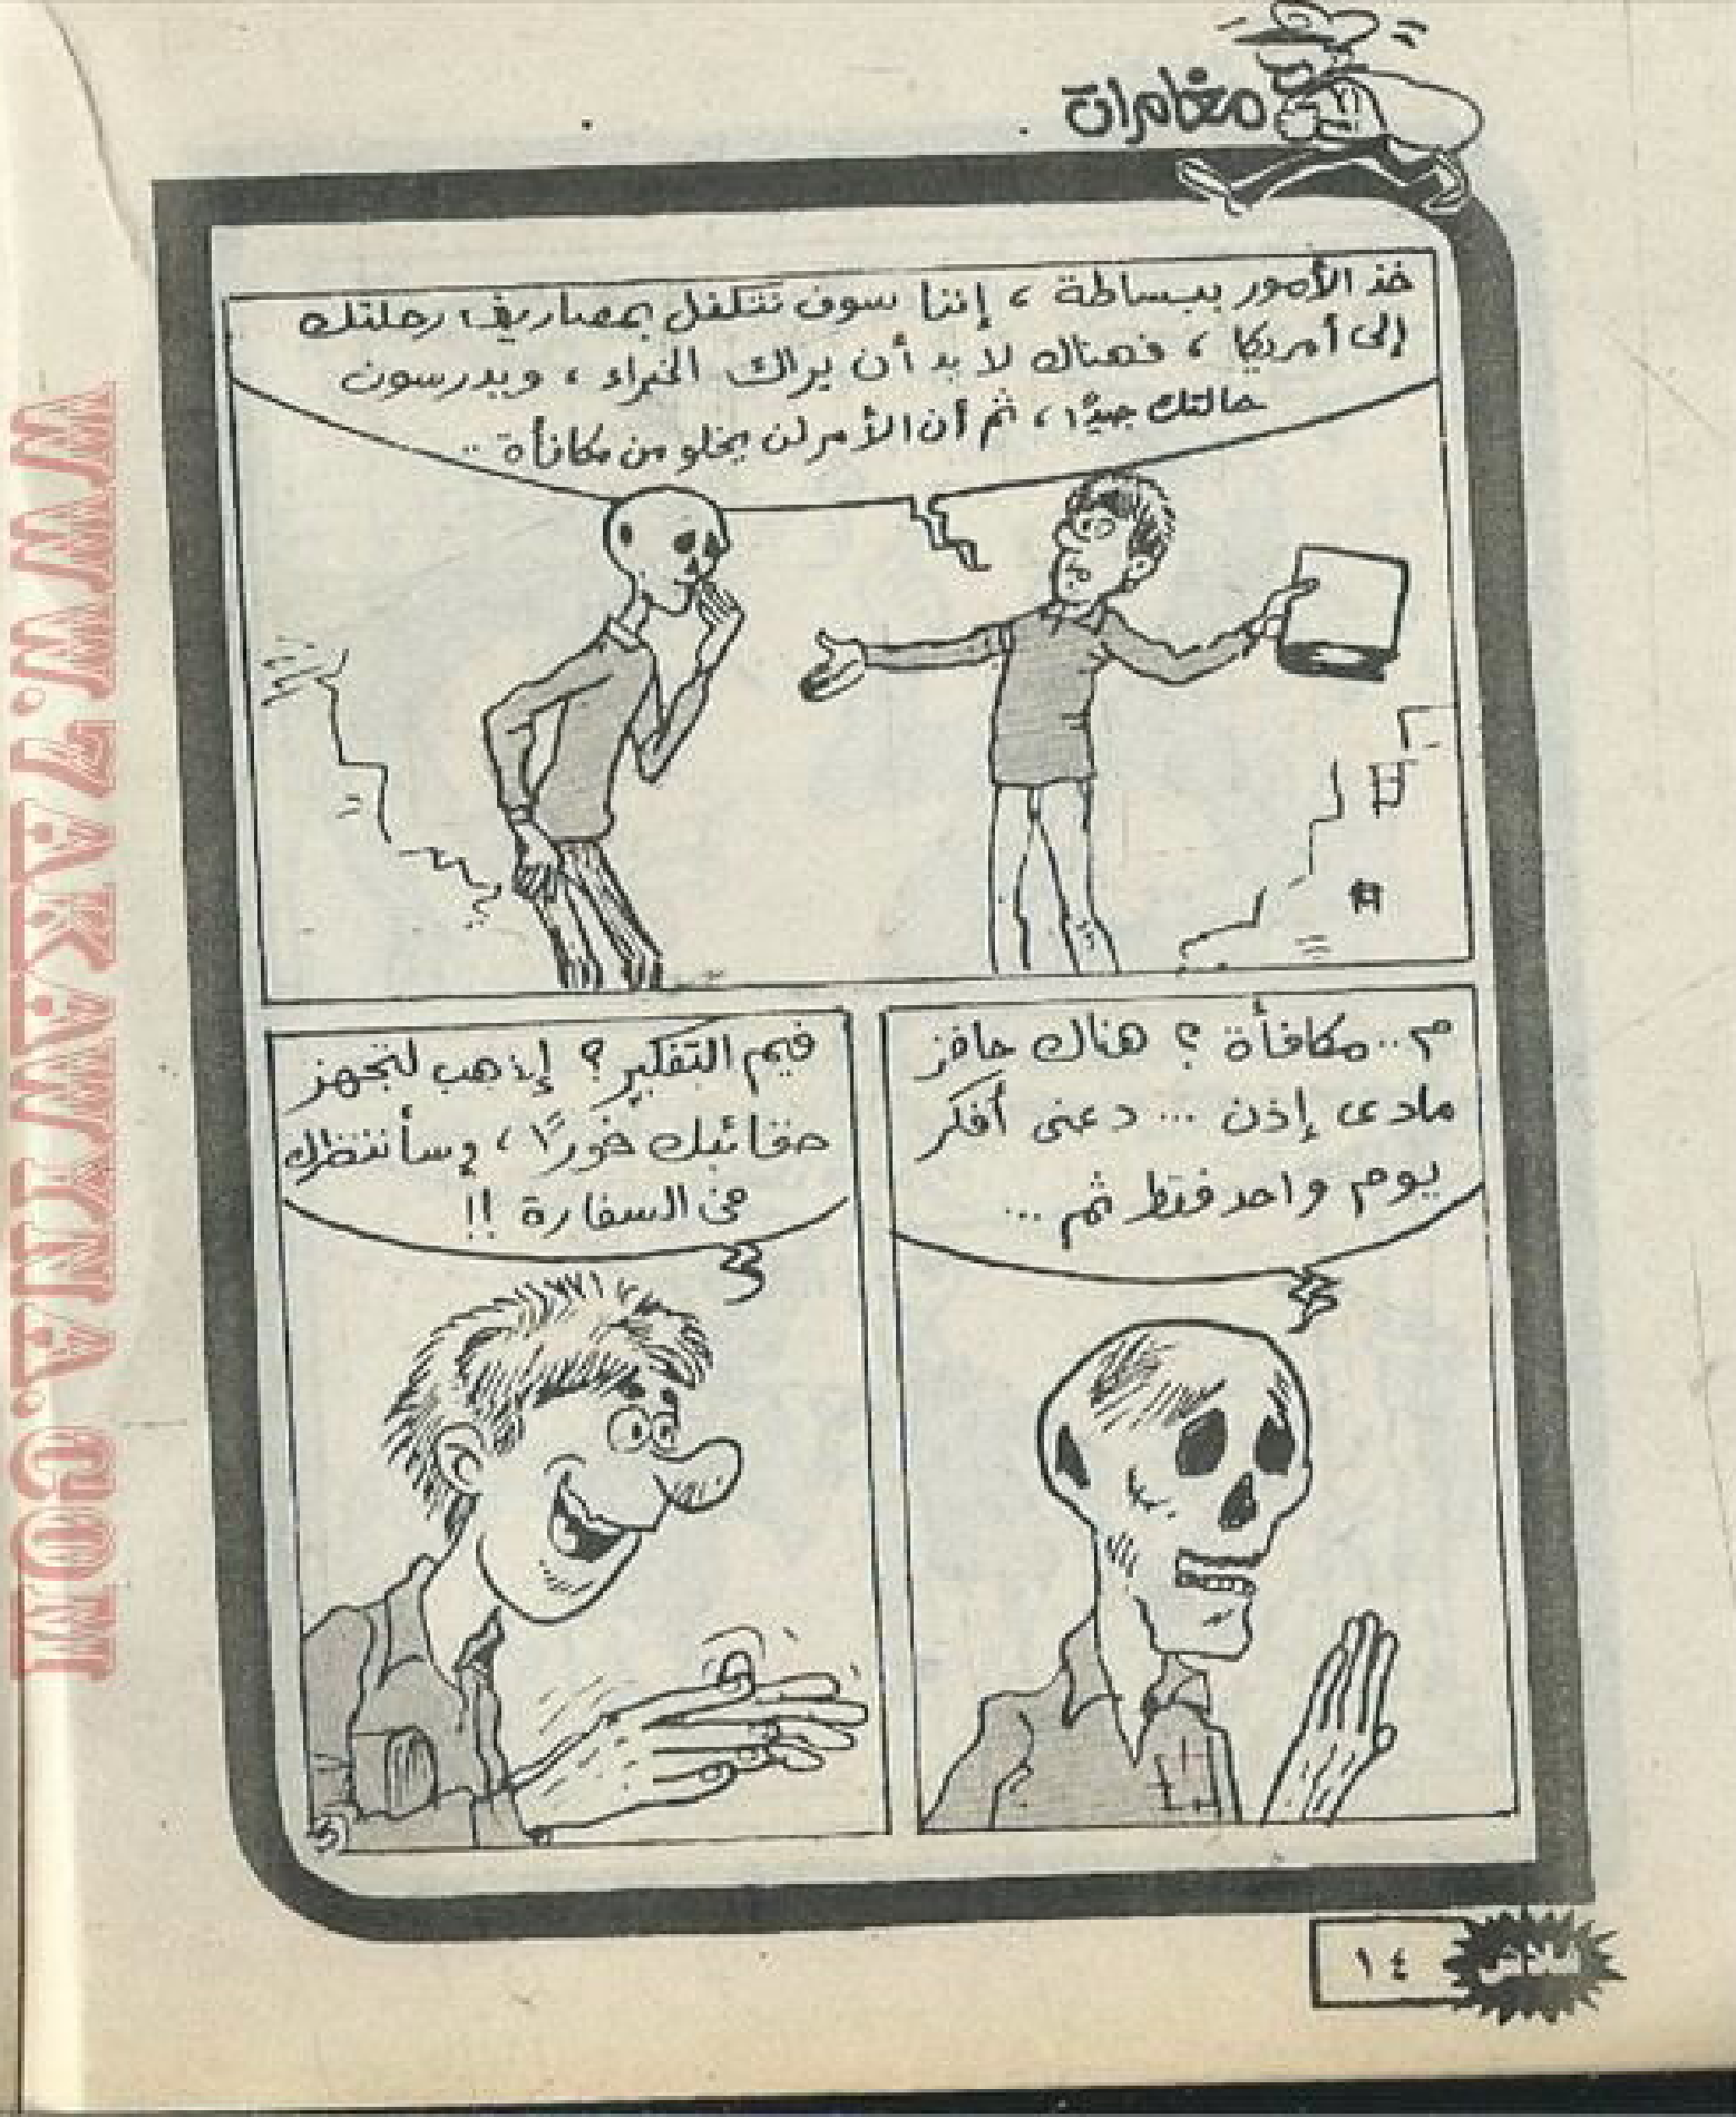 مغامرات
خذ الأمور ببساطة ، إننا سوف نتكفل بمصاريف رحلتك
إلى أمريكا ، فهناك لا بد أن يراك الخبراء ، ويدرسون
حالتك جيدًا ، ثم أن الأمر لن يخلو من مكافأة ..
م .. مكافأة ؟ هناك حافز
مادى إذن ... دعنى أفكر
يوم واحد فقط ثم ...
فيم التفكير ؟ إذهب لتجهز
حقائبك فورًا ، وسأنتظرك
فى السفارة !!
فلاش
١٤
WWW.7AKAWYTNA.COM